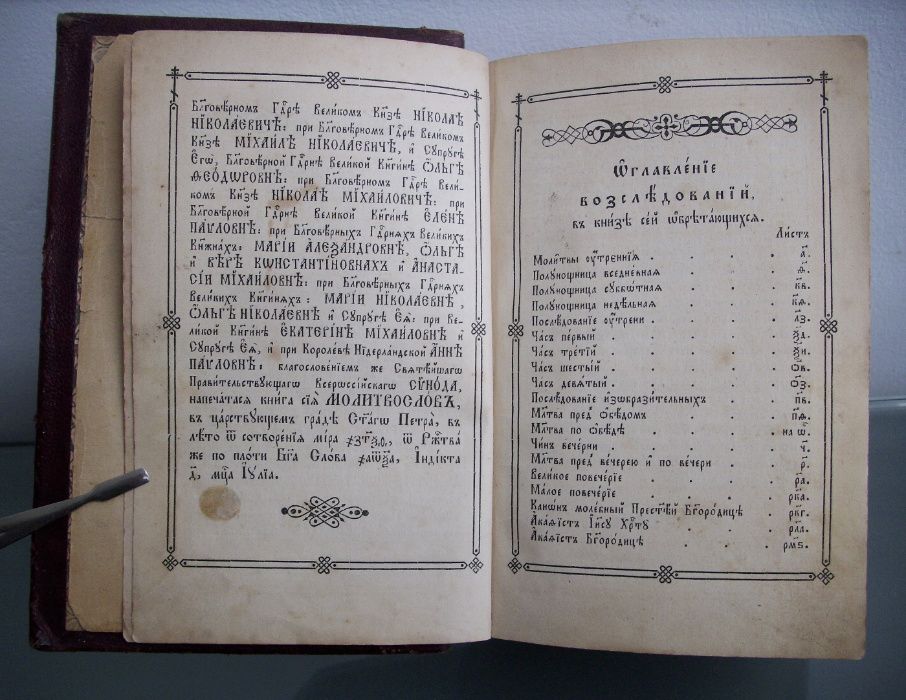 Бл҃говѣ́рномъ Гдⷭ҇рѣ Вели́комъ Кн҃зѣ НІКОЛАѢ
НІКОЛАЕВИЧѢ: при Бл҃говѣ́рномъ Гдⷭ҇рѣ Вели́комъ
Кн҃зѣ МІХАИ́ЛѢ НІКОЛАЕВИЧѢ, и҆ Сꙋпрꙋ́гѣ
Є҆гѡ̀, Бл҃говѣ́рной Гдⷭ҇рнѣ Вели́кой Кн҃ги́нѣ Ѻ҆́ЛЬГѢ
ѲЕОДѠРОВНѢ: при Бл҃говѣ́рномъ Гдⷭ҇рѣ Вели́-
комъ Кн҃зѣ НІКОЛАѢ МІХАИ́ЛОВИЧѢ: при
Бл҃говѣ́рной Гдⷭ҇рнѣ Вели́кой Кн҃ги́нѣ Є҆ЛЕ́НѢ
ПАѴЛОВНѢ: при Бл҃говѣ́рныхъ Гдⷭ҇рнѧхъ Вели́кихъ
Кн҃жна́хъ: МАРІ́И АЛЕѮАНДРОВНѢ, Ѻ҆́ЛЬГѢ
и҆ ВѢ́РѢ КѠНСТАНТІ́НОВНАХЪ и҆ АНАСТА-
СІ́И МІХАИ́ЛОВНѢ: при Бл҃говѣ́рныхъ Гдⷭ҇рнѧхъ
Вели́кихъ Кн҃ги́нѧхъ: МАРІ́И НІКОЛАЕВНѢ,
Ѻ҆́ЛЬГѢ НІКОЛАЕВНѢ и҆ Сꙋпрꙋ́гѣ Є҆Ѧ̀: при Ве-
ли́кой Кн҃ги́нѣ Є҆КАТЕРИ́НѢ МІХАИ́ЛОВНѢ и҆
Сꙋпрꙋ́гѣ Є҆Ѧ̀, и҆ при Короле́вѣ Нідерла́ндской А҆́ННѢ
ПАѴЛОВНѢ: благослове́ніемъ же Свѧтѣ́йшагѡ
Прави́тельствꙋющагѡ Всерѡссі́йскагѡ СѴНО́ДА,
напеча́тасѧ кни́га сїѧ̀ МОЛИТВОСЛО́ВЪ,
въ ца́рствꙋющемъ гра́дѣ Ст҃а́гѡ Петра̀, въ
лѣ́то ѿ сотворе́нїѧ мі́ра ҂зт҃ѯѳ, ѿ Рж҇тва̀
же по пло́ти Бг҃а Сло́ва ҂аѿ҃ѯа, І҆ндї́кта
д҃, мцⷭ҇а І҆ꙋ́лїа.
Ѡ҆главле́нїе
возслѣ́дованїй,
въ кни́зѣ се́й ѡ҆брѣта́ющихсѧ.
Ли́стъ
Моли́твы ᲂу҆́тренїѧ . . . . а҃.
Полꙋ́нощница вседне́внаѧ . . . . д҃.
Полꙋ́нощница сꙋббѡ́тнаѧ . . . . кв҃.
Полꙋ́нощница недѣ́льнаѧ . . . . кѳ҃.
Послѣ́дованїе ᲂу҆́трени . . . . лз҃.
Ча́съ пе́рвый . . . . ѯд҃.
Ча́съ тре́тїй . . . . ѯи҃.
Ча́съ шесты́й . . . . ѻв҃.
Ча́съ девѧ́тый . . . . ѻз҃.
Послѣ́дованїе и҆зѡбрази́тельныхъ . . . пв҃.
Мл҃тва пред̾ ѻ҆бѣ́домъ . . . . пѳ҃.
Мл҃тва по ѻ҆бѣ́дѣ . . . . на ѻ҆б.
Чи́нъ вече́рни . . . . ч҃.
Мл҃тва пред̾ ве́черею и҆ по ве́чери . . р҃.
Вели́кое повече́рїе . . . . ра҃.
Ма́лое повече́рїе . . . . рка҃.
Канѡ́нъ моле́бный Прест҃ѣ́й Бг҃оро́дицѣ . . ркг҃.
А҆ка́ѳїстъ І҆и҃сꙋ Хрⷭ҇тꙋ̀ . . . . рла҃.
А҆ка́ѳїстъ Бг҃оро́дицѣ . . . . рмѕ҃.